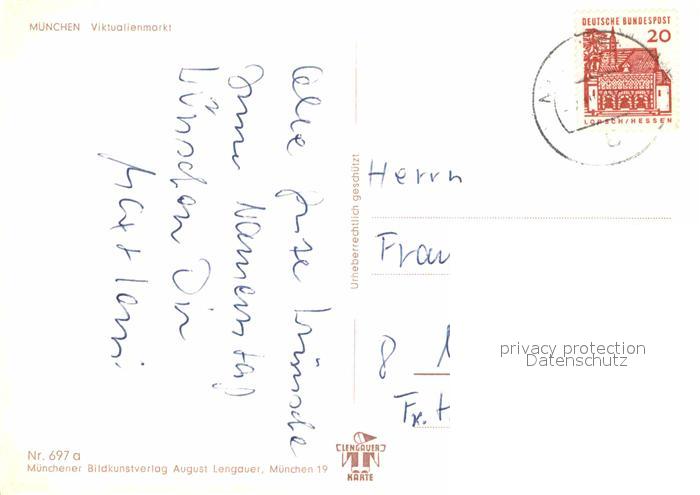 MÜNCHEN Viktualienmarkt
DEUTSCHE BUNDESPOST
20
LORSCH/HESSEN
Alle gute Wünsche
zum Namenstag
wünschen Dir
Max +
Urheberrechtlich geschützt
Herrn
Fran
8 1
Fr. H
privacy protection
Datenschutz
Nr. 697 a
Münchener Bildkunstverlag August Lengauer, München 19
LENGAUER
KARTE